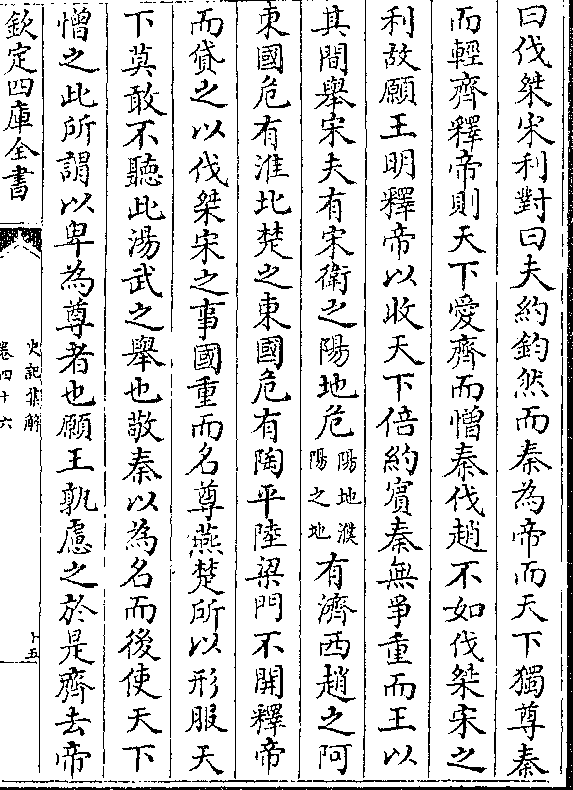 曰伐桀宋利對曰夫約鈞然而秦為帝而天下獨尊秦
而輕齊釋帝則天下愛齊而憎秦伐趙不如伐桀宋之
利故願王明釋帝以收天下倍約賔秦無爭重而王以
其間舉宋夫有宋衛之陽地危陽地濮陽之地有濟西趙之阿
東國危有淮北楚之東國危有陶平陸梁門不開釋帝
而貸之以伐桀宋之事國重而名尊燕楚所以形服天
下莫敢不聽此湯武之舉也敬秦以為名而後使天下
憎之此所謂以卑為尊者也願王孰慮之於是齊去帝
欽定四庫全書
史記集解
卷四十六
十五